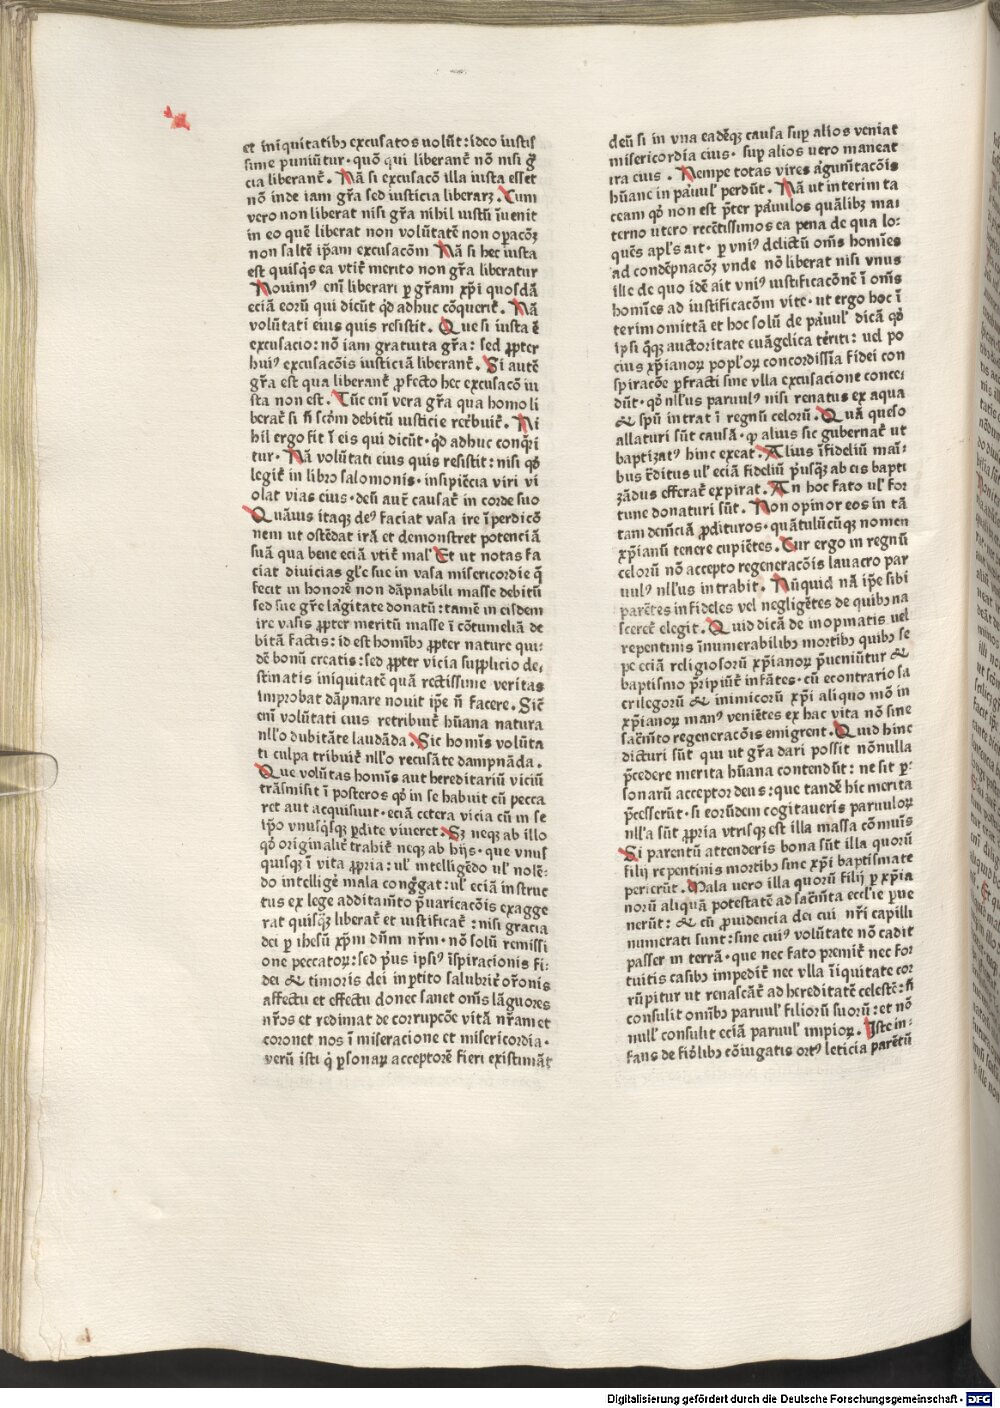 et iniquitatibꝫ excusatos volūt: ideo iustis
sime puniūtur · quō qui liberant̄ nō nisi gr̄
cia liberant̄ . Nā si excusacō illa iusta esset
nō inde iam gr̄a sed iusticia liberaret . Cum
vero non liberat nisi gr̄a nihil iustū īuenit
in eo quē liberat non volūtatē non opacōꝫ
non saltē ip̄am excusacōm Nā si hec iusta
est quisq̇s ea vtit̄ merito non gr̄a liberatur
Nouimꝰ em̄ liberari ꝑ gr̄am xp̄i quosdā
eciā eorū qui dicūt qd̓ adhuc cōquerit̄ . Nā
volūtati eius quis resistit . Que si iusta ē
excusacio: nō iam gratuita gr̄a: sed ꝓpter
huiꝰ excusacōis iusticiā liberant̄ . Si autē
gr̄a est qua liberant̄ ꝓfecto hec excusacō iu
sta non est . Tūc em̄ vera gr̄a qua homo li
berat̄ si n̄ scd̓m debitū iusticie ret̄buit̄ . Ni
hil ergo fit ī eis qui dicūt · qd̓ adhuc conq̄ri
tur · Nā volūtati eius quis resistit: nisi qd̓
legit̄ in libro salomonis · insipiēcia viri vi
olat vias eius · deū aut̄ causat̄ in corde suo
Quāuis itaqꝫ deꝰ faciat vasa ire ī perdicō
nem ut ostēdat irā et demonstret potenciā
suā qua bene eciā vtit̄ malꝭ Et ut notas fa
ciat diuicias gl̄e sue in vasa misericordie q̄
fecit in honorē non dāpnabili masse debitū
sed sue gr̄e largitate donatū: tamē in eisdem
ire vasis ꝓpter meritū masse ī cōtumeliā de
bitā factis: id est homībꝫ ꝓpter nature qui-
dē bonū creatis: sed ꝓpter vicia supplicio de-
stinatis iniquitatē quā rectissime veritas
improbat dāpnare nouit ip̄e n̄ facere . Sic̄
em̄ volūtati eius retribuit̄ hūana natura
nll̓o dubitāte laudāda . Sic homīs volūta
ti culpa tribuit̄ nll̓o recusāte dampnāda .
Que volūtas homīs aut hereditariū viciū
trāsmisit ī posteros qd̓ in se habuit cū pecca
ret aut acquisiuit · eciā cetera vicia cū in se
ip̄o vnusq̇sqꝫ ꝑdite viueret . Sꝫ neqꝫ ab illo
qd̓ originalit̄ trahit̄ neqꝫ ab hijs · que vnus
quisqꝫ ī vita ꝓpria: ul̓ intelligēdo ul̓ nolē-
do intelligē mala congregat: ul̓ eciā instruc
tus ex lege additam̄to p̄uaricacōis exagge
rat quisqꝫ liberat̄ et iustificat̄ : nisi gracia
dei ꝑ ihesū xp̄m dn̄m nr̄m · nō solū remissi
one peccatoꝝ: sed p̄us ipsiꝰ īspiracionis fi-
dei ⁊ timoris dei inꝑtito salubrit̄ or̄onis
affectu et effectu donec sanet om̄s lāguores
nr̄os et redimat de corrupcōe vitā nr̄am et
coronet nos ī miseracione et misericordia ·
verū isti q̇ ꝑsonaꝝ acceptorē fieri existimāt
deū si in vna eadēqꝫ causa suꝑ alios veniat
misericordia eius · suꝑ alios uero maneat
ira eius . Nempe totas vires argum̄tacōis
hūane in paruul̓ perdūt . Nā ut interim ta
ceam qd̓ non est p̄ter paruulos quālibꝫ ma-
terno utero recētissimos ea pena de qua lo-
quēs apl̓s ait · ꝑ vniꝰ delictū om̄s homīes
ad condēpnacōꝫ vnde nō liberat nisi vnus
ille de quo idē ait vniꝰ iustificacōne ī om̄s
homīes ad iustificacōm vite · ut ergo hoc ī
terim omittā et hoc solū de paruul̓ dicā qd̓
ipsi q̄qꝫ auctoritate euāgelica tēriti: uel po
cius xp̄ianoꝝ popl̓oꝝ concordissīa fidei con
spiracōe ꝑfracti sine vlla excusacione conce-
dūt · qd̓ nll̓us paruulꝰ nisi renatus ex aqua
⁊ spū intrat ī regnū celorū . Quā queso
allaturi sūt causā · ꝙ alius sic gubernat̄ ut
baptizatꝰ hinc exeat . Alius īfideliū mai-
bus t̄ditus ul̓ eciā fideliū p̄usqꝫ ab eis bapti
zādus efferat̄ expirat . An hoc fato ul̓ for
tune donaturi sūt . Non opinor eos in tā
tam dem̄ciā ꝓdituros · quātulūcūqꝫ nomen
xp̄ianū tenere cupiētes . Cur ergo in regnū
celorū nō accepto regeneracōis lauacro par
uulꝰ nll̓us intrabit . Nūquid nā ip̄e sibi
parētes infideles vel negligētes de quibꝫ na
sceret̄ elegit . Quid dicā de inopinatis uel
repentinis īnumerabilibꝫ mortibꝫ quibꝫ se
pe eciā religiosorū xp̄ianoꝝ p̄ueniūtur ⁊
baptismo p̄ripiūt̄ infātes · cū econtrario sa
crilegorū ⁊ inimicorū xp̄i aliquo mō in
xp̄ianoꝝ manꝰ veniētes ex hac vita nō sine
sac̄mto regeneracōis emigrent . Quid hinc
dicturi sūt qui ut gr̄a dari possit nōnulla
p̄cedere merita hūana contendūt: ne sit ꝑ-
sonarū acceptor deus: que tandē hic merita
p̄cesserūt · si eorūdem cogitaueris paruuloꝝ
nll̓a sūt ꝓpria vtrisqꝫ est illa massa cōmuīs
Si parentū attenderis bona sūt illa quorū
filij repentinis mortibꝫ sine xp̄i baptismate
perierūt . Mala uero illa quorū filij ꝑ xp̄ia
norū aliquā potestatē ad sac̄mta eccl̓ie ꝑue
nerūt: ⁊ cū ꝓuidencia dei cui nr̄i capilli
numerati sunt: sine cuiꝰ volūtate nō cadit
passer in terrā · que nec fato premit̄ nec for
tuitis casibꝫ impedit̄ nec vlla īiquitate cor
rūpitur ut renascāt̄ ad hereditatē celestē: n̄
consulit omībꝫ paruul̓ filiorū suorū: et nō
null̓ consulit eciā paruul̓ impioꝝ . Iste in-
fans de fidelibꝫ cōiugatis ortꝰ leticia parētū
Digitalisierung gefördert durch die Deutsche Forschungsgemeinschaft - DFG